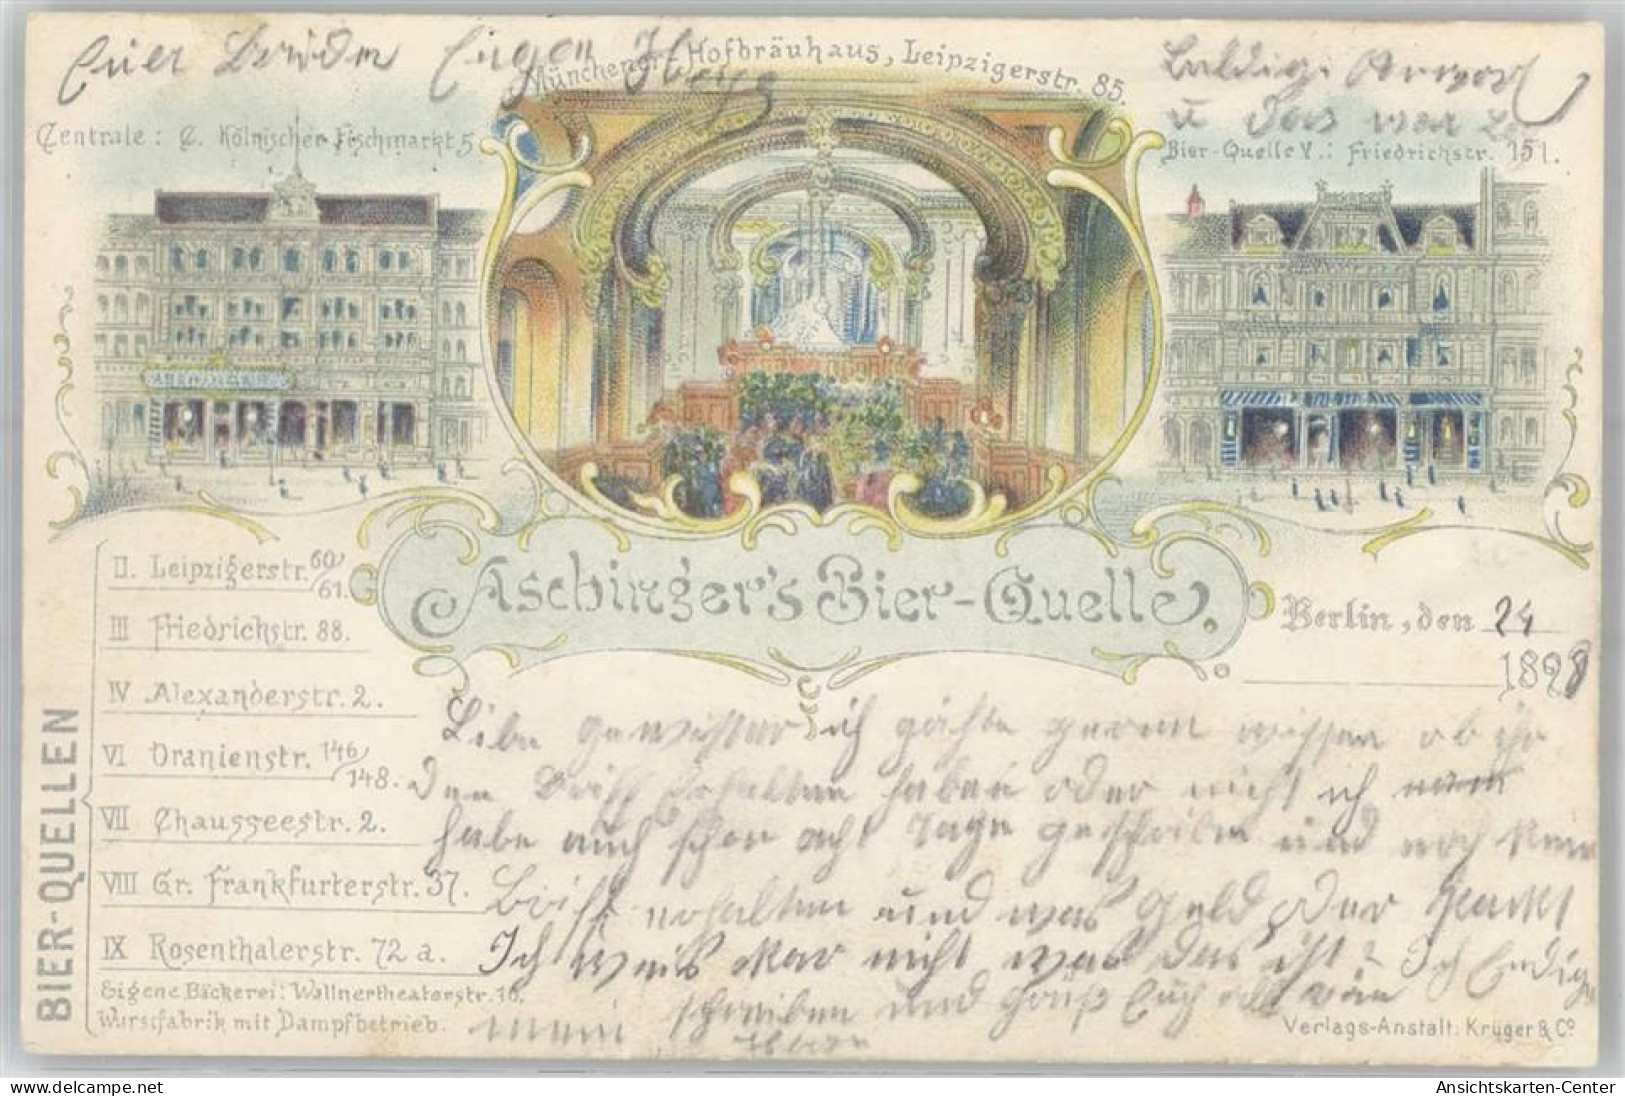 Euer Bruder Eugen
Münchener Hofbräuhaus, Leipzigerstr. 85.
Baldige Antwort
u das war
Centrale: C. Kölnischer Fischmarkt 5
Bier-Quelle V.: Friedrichstr. 151.
ASCHINGER
Aschinger's Bier-Quelle.
BIER-QUELLEN
II. Leipzigerstr. 60/61.
III Friedrichstr. 88.
IV Alexanderstr. 2.
VI Oranienstr. 146/148.
VII Chausseestr. 2.
VIII Gr. Frankfurterstr. 37.
IX Rosenthalerstr. 72 a.
Eigene Bäckerei: Wallnertheaterstr. 16.
Wurstfabrik mit Dampfbetrieb.
Berlin, den 24
1898
Libe gewister ich gerne wissen ob ihr
den Brif erhalten haben oder nicht ich
habe auch schon acht Tage geschriben und noch kein
Brif erhalten und was Geld der
Ich weis gar nicht was das ist? Ich
mein schreiben und grüß Euch alle
Verlags-Anstalt: Krüger & Co
Ansichtskarten-Center
https://www.delcampe.net